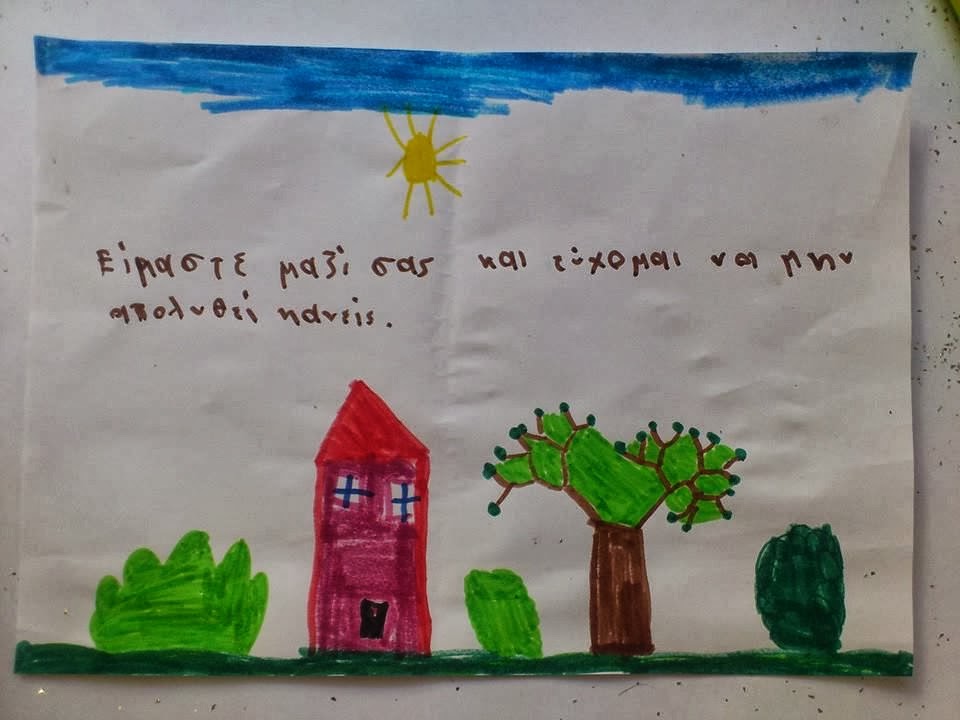 Είμαστε μαζί σας και εύχομαι να μην
απολυθεί κάνεις.